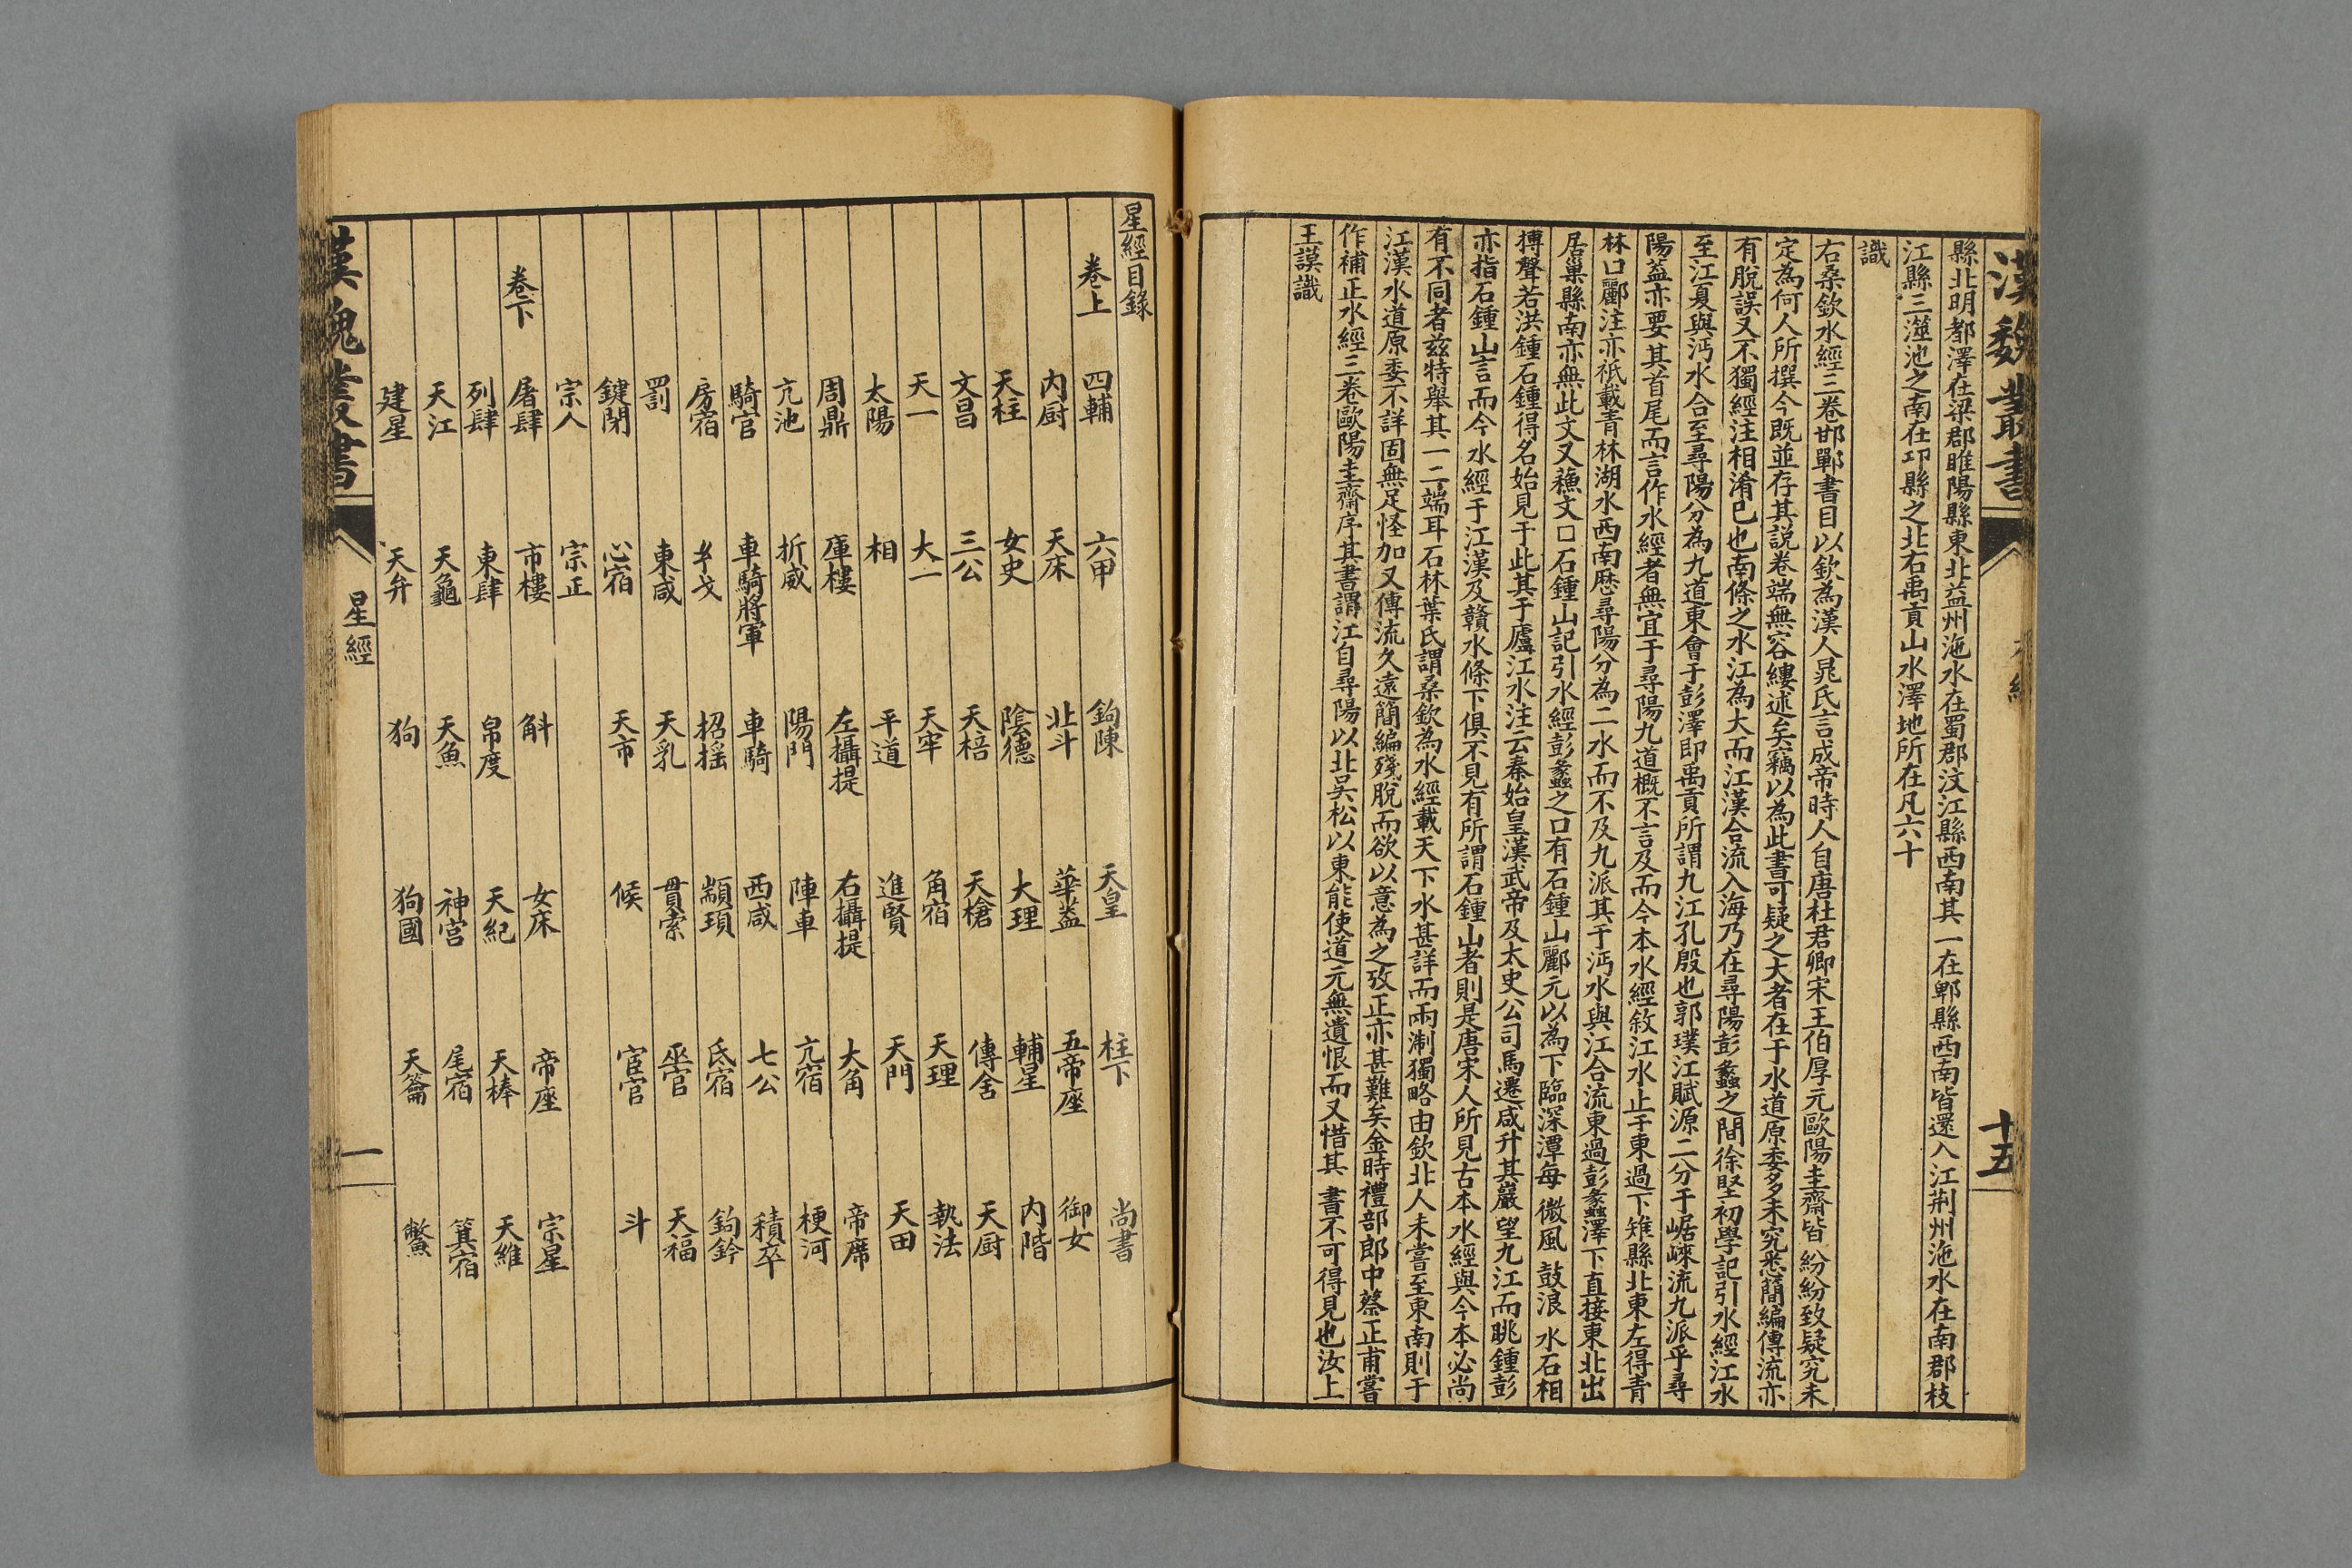 漢魏叢書
十五
縣北明都澤在梁郡睢陽縣東北益州沲水在蜀郡汶江縣西南其一在郫縣西南皆還入江荆州沲水在南郡枝
江縣三澨池之南在邔縣之北右禹貢山水澤地所在凡六十
識
右桑欽水經三卷邯鄲書目以欽為漢人晁氏言成帝時人自唐杜君卿宋王伯厚元歐陽圭齋皆紛紛致疑究未
定為何人所撰今既並存其說卷端無容縷述矣竊以為此書可疑之大者在于水道原委多未究悉簡編傳流亦
有脫誤又不獨經注相淆已也南條之水江為大而江漢合流入海乃在尋陽彭蠡之間徐堅初學記引水經江水
至江夏與沔水合至尋陽分為九道東會于彭澤即禹貢所謂九江孔殷也郭璞江賦源二分于崌崍流九派乎尋
陽蓋亦要其首尾而言作水經者無宜于尋陽九道概不言及而今本水經敘江水止于東過下雉縣北東左得青
林口酈注亦祇載青林湖水西南歷尋陽分為二水而不及九派其于沔水與江合流東過彭蠡澤下直接東北出
居巢縣南亦無此文又蘓文口石鍾山記引水經彭蠡之口有石鍾山酈元以為下臨深潭每微風鼓浪水石相
搏聲若洪鍾石鍾得名始見于此其于廬江水注云秦始皇漢武帝及太史公司馬遷咸升其巖望九江而眺鍾彭
亦指石鍾山言而今水經于江漢及贛水條下俱不見有所謂石鍾山者則是唐宋人所見古本水經與今本必尚
有不同者兹特舉其一二端耳石林葉氏謂桑欽為水經載天下水甚詳而兩淛獨略由欽北人未嘗至東南則于
江漢水道原委不詳固無足怪加又傳流久遠簡編殘脫而欲以意為之攷正亦甚難矣金時禮部郎中蔡正甫嘗
作補正水經三卷歐陽圭齋序其書謂江自尋陽以北吳松以東能使道元無遺恨而又惜其書不可得見也汝上
王謨識
星經目錄
卷上 四輔 六甲 鉤陳 天皇 柱下 尚書
内厨 天床 北斗 華蓋 五帝座 御女
天柱 女史 陰德 大理 輔星 内階
文昌 三公 天棓 天槍 傳舍 天厨
天一 大一 天牢 角宿 天理 執法
太陽 相 平道 進賢 天門 天田
周鼎 庫樓 左攝提 右攝提 大角 帝席
亢池 折威 陽門 陣車 亢宿 梗河
騎官 車騎將軍 車騎 西咸 七公 積卒
房宿 招摇 顓頊 氐宿 鉤鈐
罰 東咸 天乳 貫索 巫官 天福
鍵閉 心宿 天市 候 宦官 斗
宗人 宗正
卷下 屠肆 市樓 斛 女床 帝座 宗星
列肆 東肆 帛度 天紀 天棒 天維
天江 天龜 天魚 神宫 尾宿 箕宿
建星 天弁 狗 狗國 天籥 鱉
漢魏叢書
星經
一